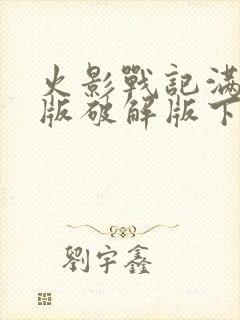 火影戰記滿
版破解版下
劉宇鑫